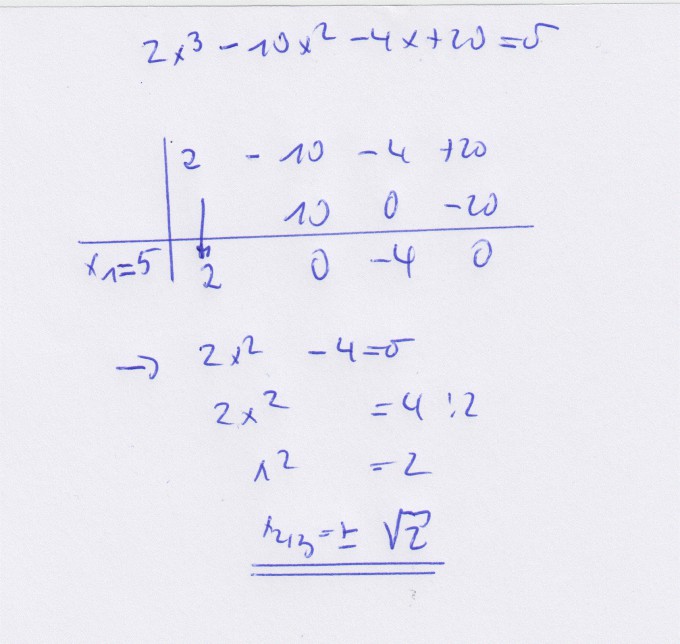 2x³ - 10x² - 4x + 20 = 0
2 - 10 - 4 + 20
10 0 - 20
x₁ = 5 2 0 - 4 0
→ 2x² - 4 = 0
2x² = 4 :2
x² = 2
x₂,₃ = ± √2